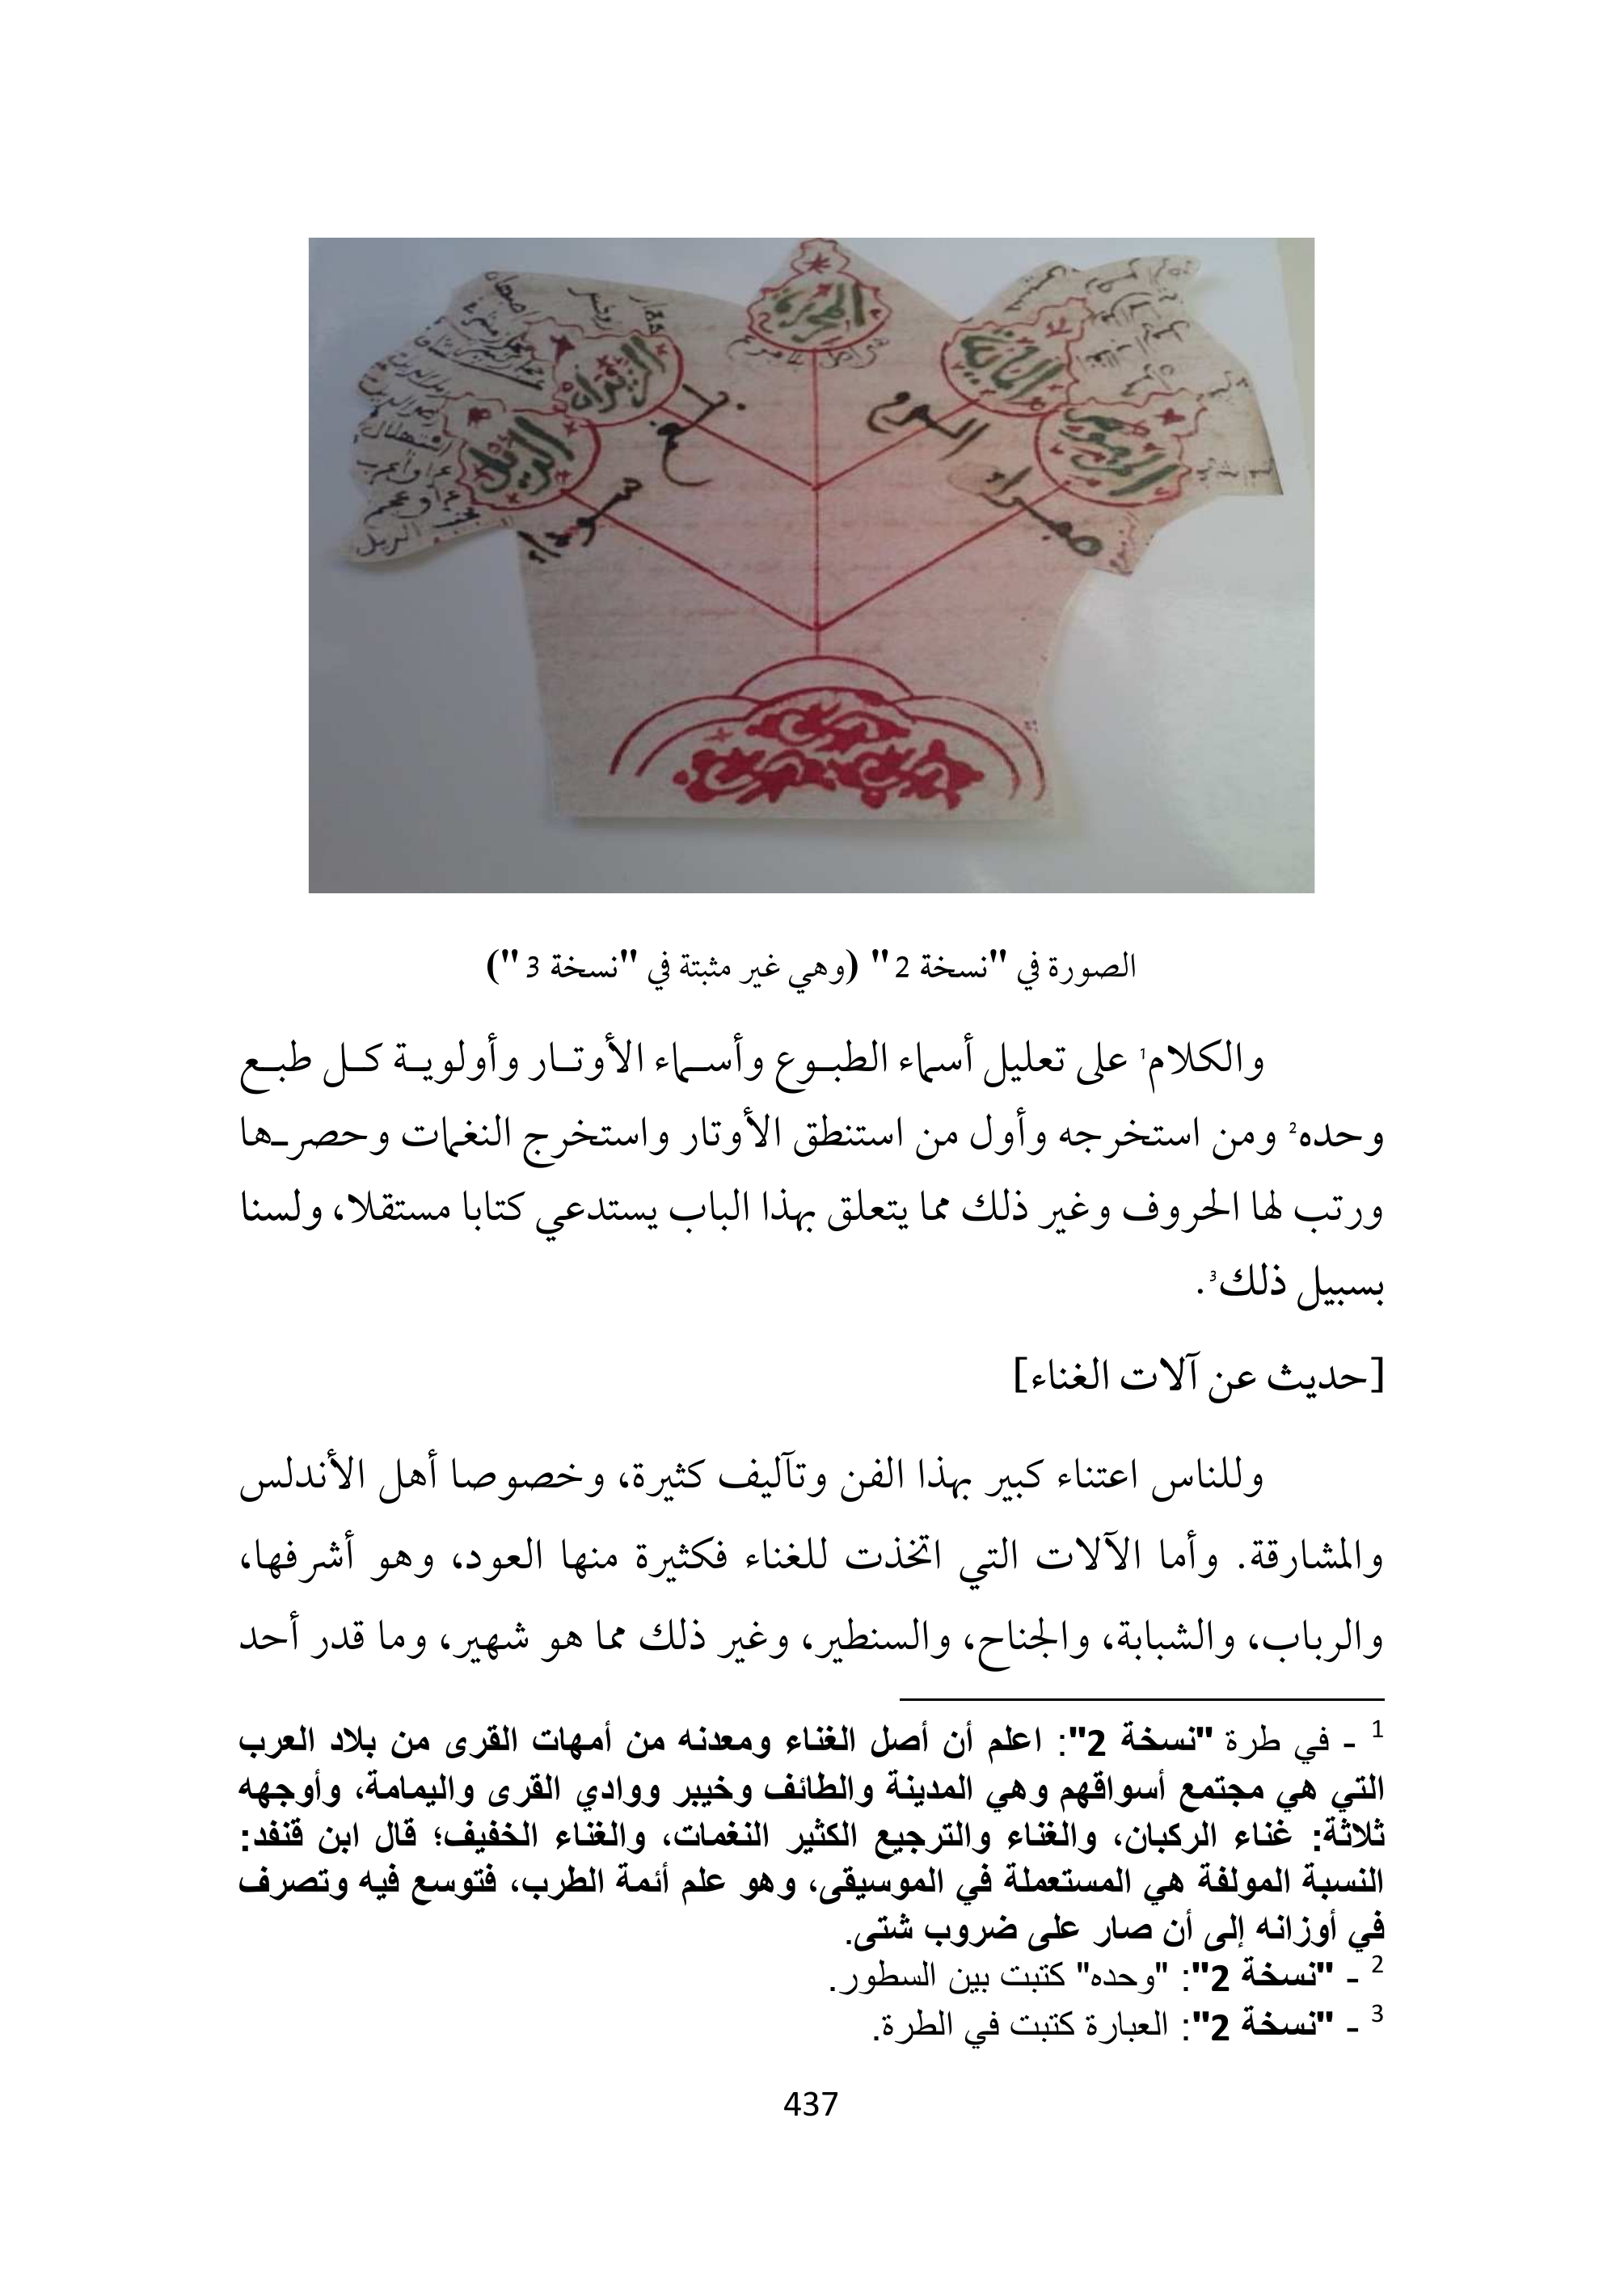 المحررة
المائية
الزيدان
المزموم
الذيل
بلغم
الدم
سوداء
صفراء
الصورة في "نسخة 2" (وهي غير مثبتة في "نسخة 3")
والكلام1 على تعليل أسماء الطبـوع وأسـماء الأوتـار وأولويـة كـل طبـع
وحده2 ومن استخرجه وأول من استنطق الأوتار واستخرج النغمات وحصرـها
ورتب لها الحروف وغير ذلك مما يتعلق بهذا الباب يستدعي كتابا مستقلا، ولسنا
بسبيل ذلك3.
[حديث عن آلات الغناء]
وللناس اعتناء كبير بهذا الفن وتآليف كثيرة، وخصوصا أهل الأندلس
والمشارقة. وأما الآلات التي اتخذت للغناء فكثيرة منها العود، وهو أشرفها،
والرباب، والشبابة، والجناح، والسنطير، وغير ذلك مما هو شهير، وما قدر أحد
1 - في طرة "نسخة 2": اعلم أن أصل الغناء ومعدنه من أمهات القرى من بلاد العرب
التي هي مجتمع أسواقهم وهي المدينة والطائف وخيبر ووادي القرى واليمامة، وأوجهه
ثلاثة: غناء الركبان، والغناء والترجيع الكثير النغمات، والغناء الخفيف؛ قال ابن قنفد:
النسبة المولفة هي المستعملة في الموسيقى، وهو علم أئمة الطرب، فتوسع فيه وتصرف
في أوزانه إلى أن صار على ضروب شتى.
2 - "نسخة 2": "وحده" كتبت بين السطور.
3 - "نسخة 2": العبارة كتبت في الطرة.
437